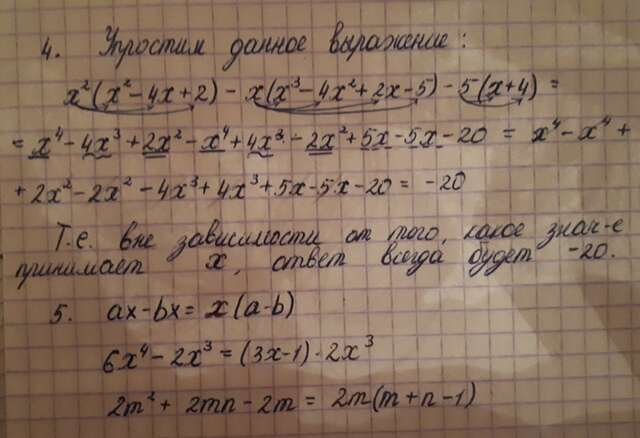 4. Упростим данное выражение:
x²(x²-4x+2) - x(x³-4x²+2x-5) - 5(x+4) =
= x⁴-4x³+2x²-x⁴+4x³-2x²+5x-5x-20 = x⁴-x⁴+
+2x²-2x²-4x³+4x³+5x-5x-20 = -20
Т.е. вне зависимости от того, какое знач-е
принимает x, ответ всегда будет -20.
5. ax-bx = x(a-b)
6x⁴-2x³ = (3x-1)·2x³
2m²+2mn-2m = 2m(m+n-1)